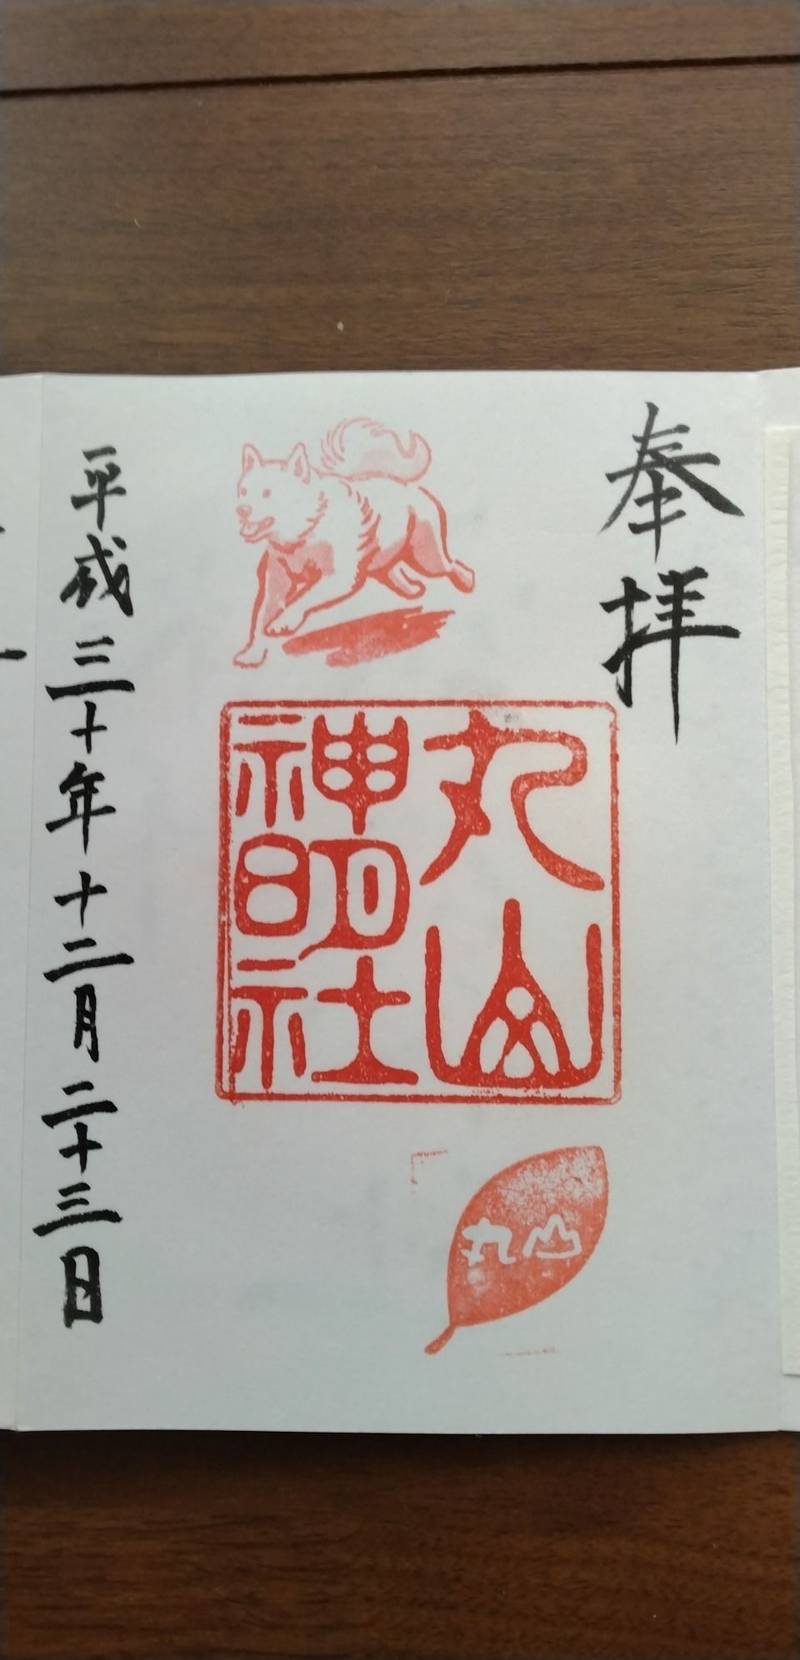 奉拝
丸山
神明社
丸山
平成三十年十二月二十三日